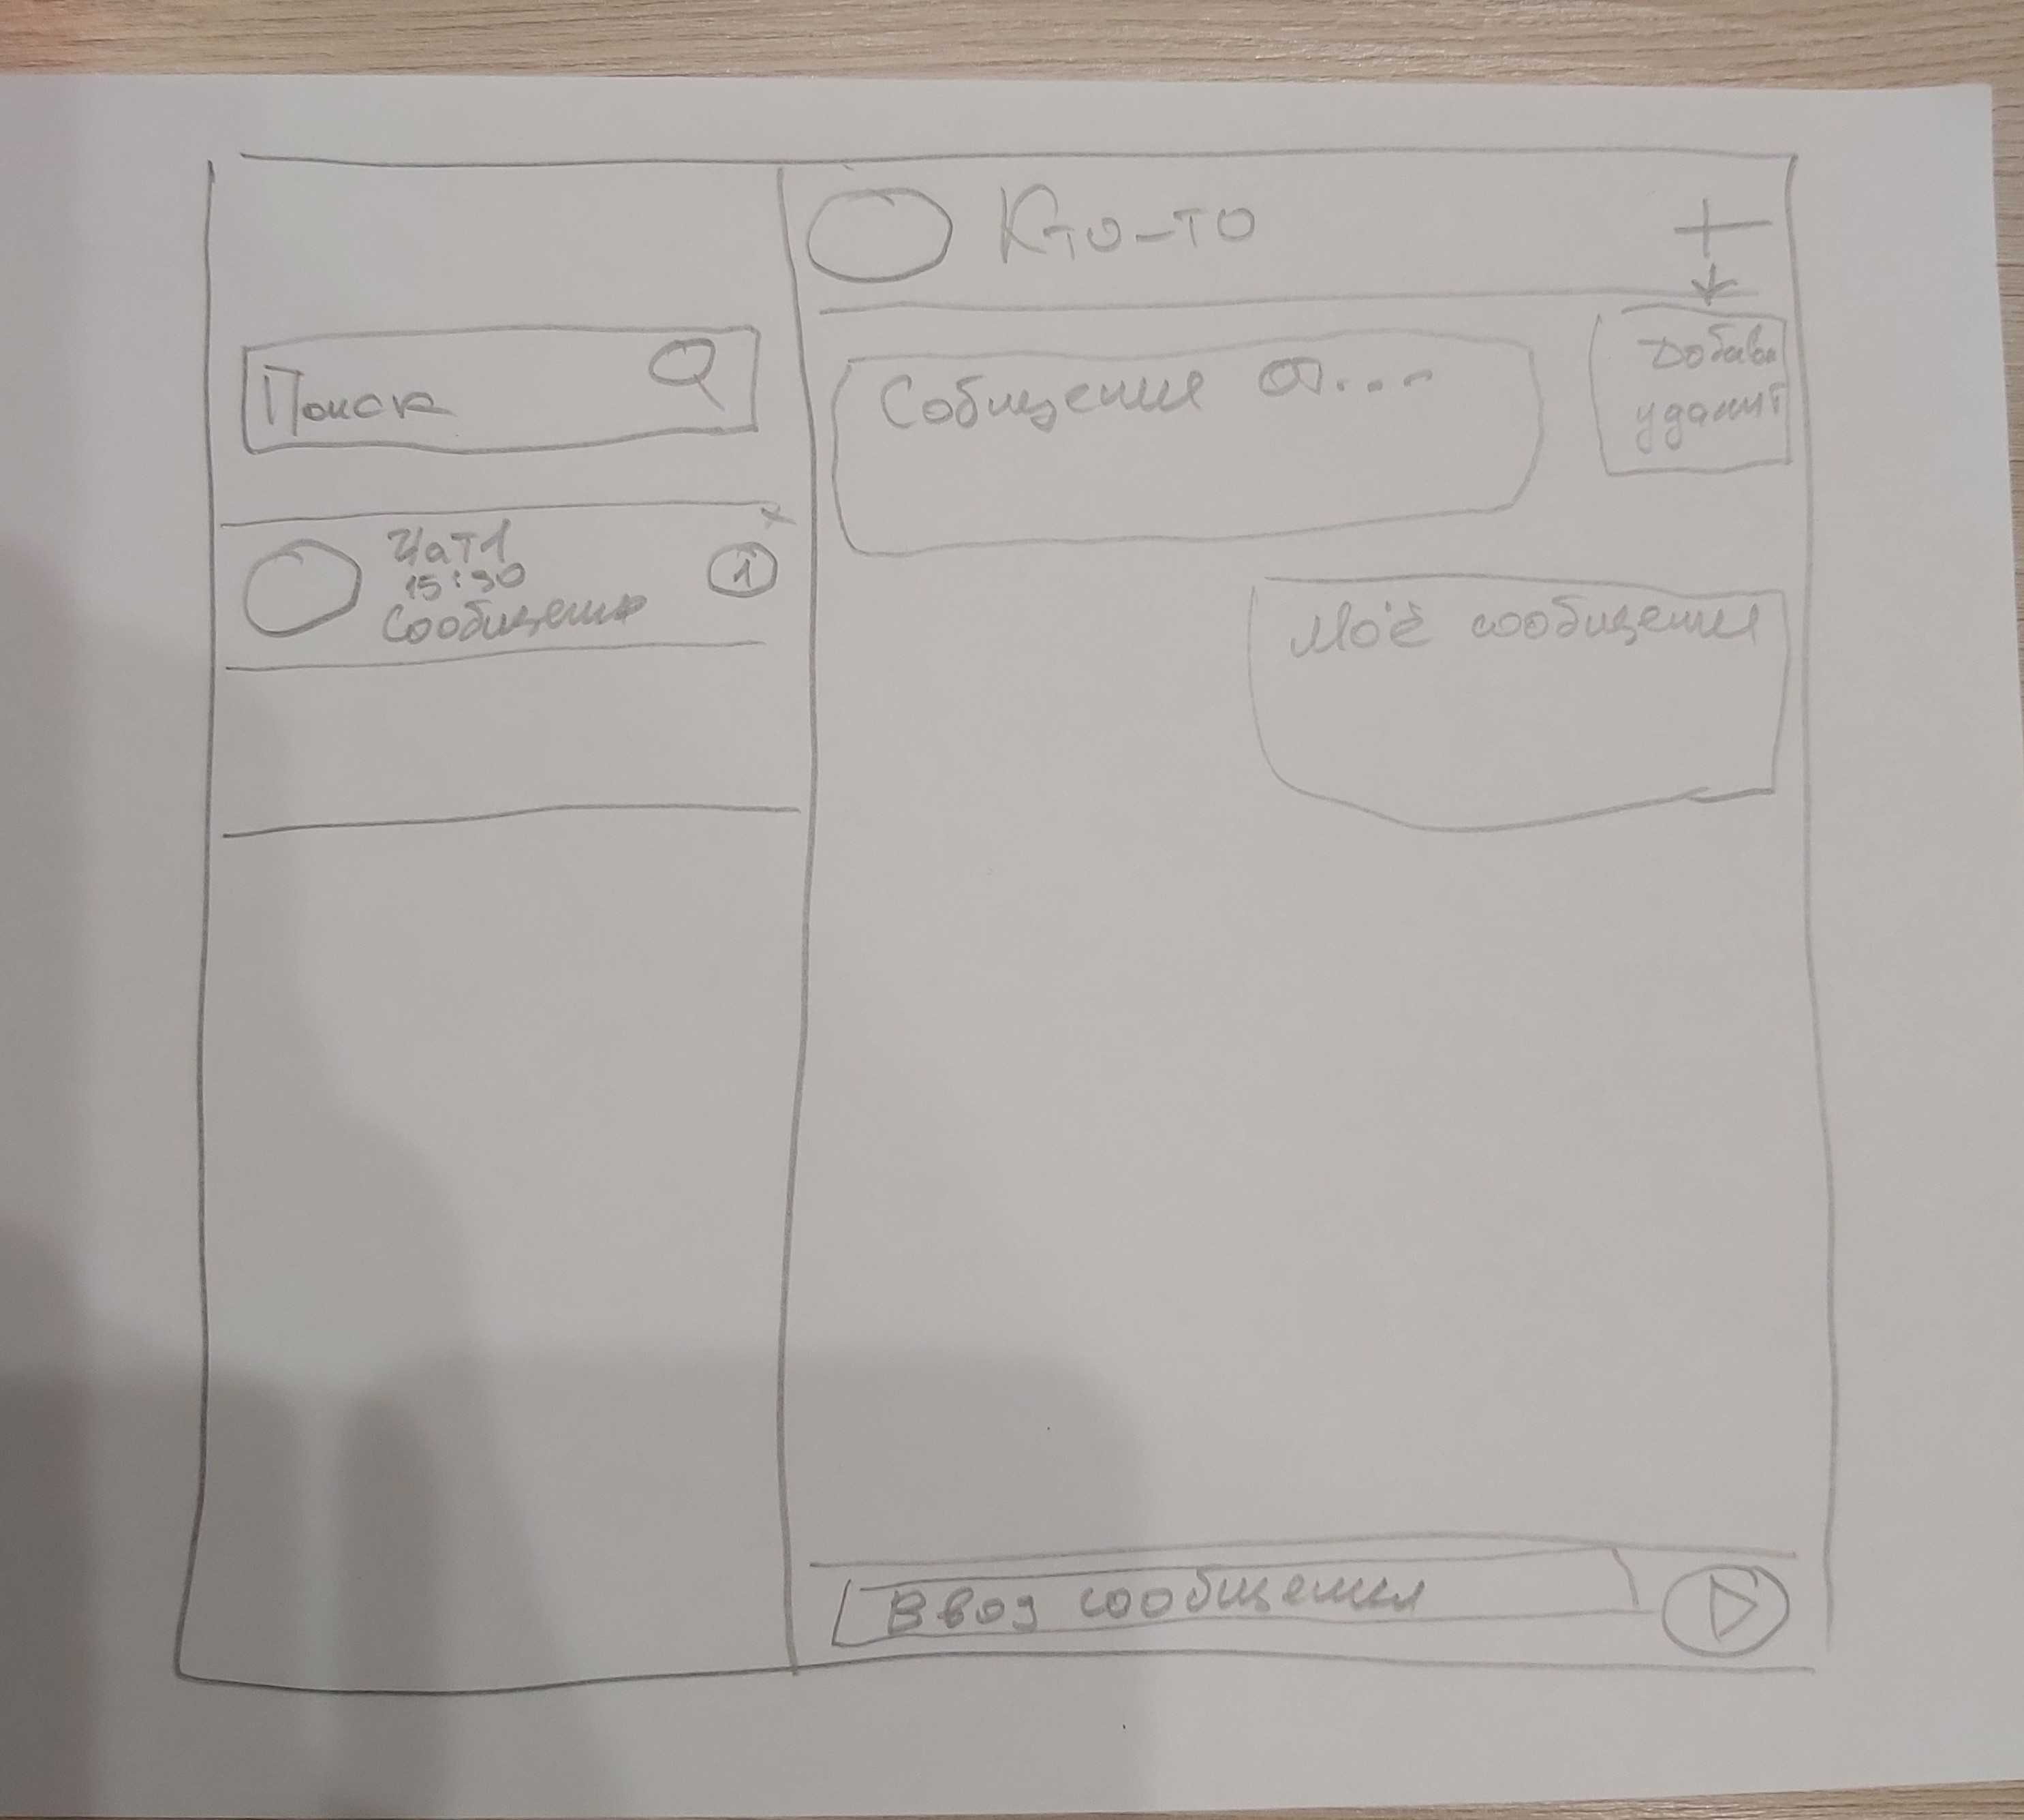 Поиск
Чат1
15:30
Сообщения
1
Кто-то
+
Добави
удалит
Собщения от...
Моё сообщения
Ввод сообщения